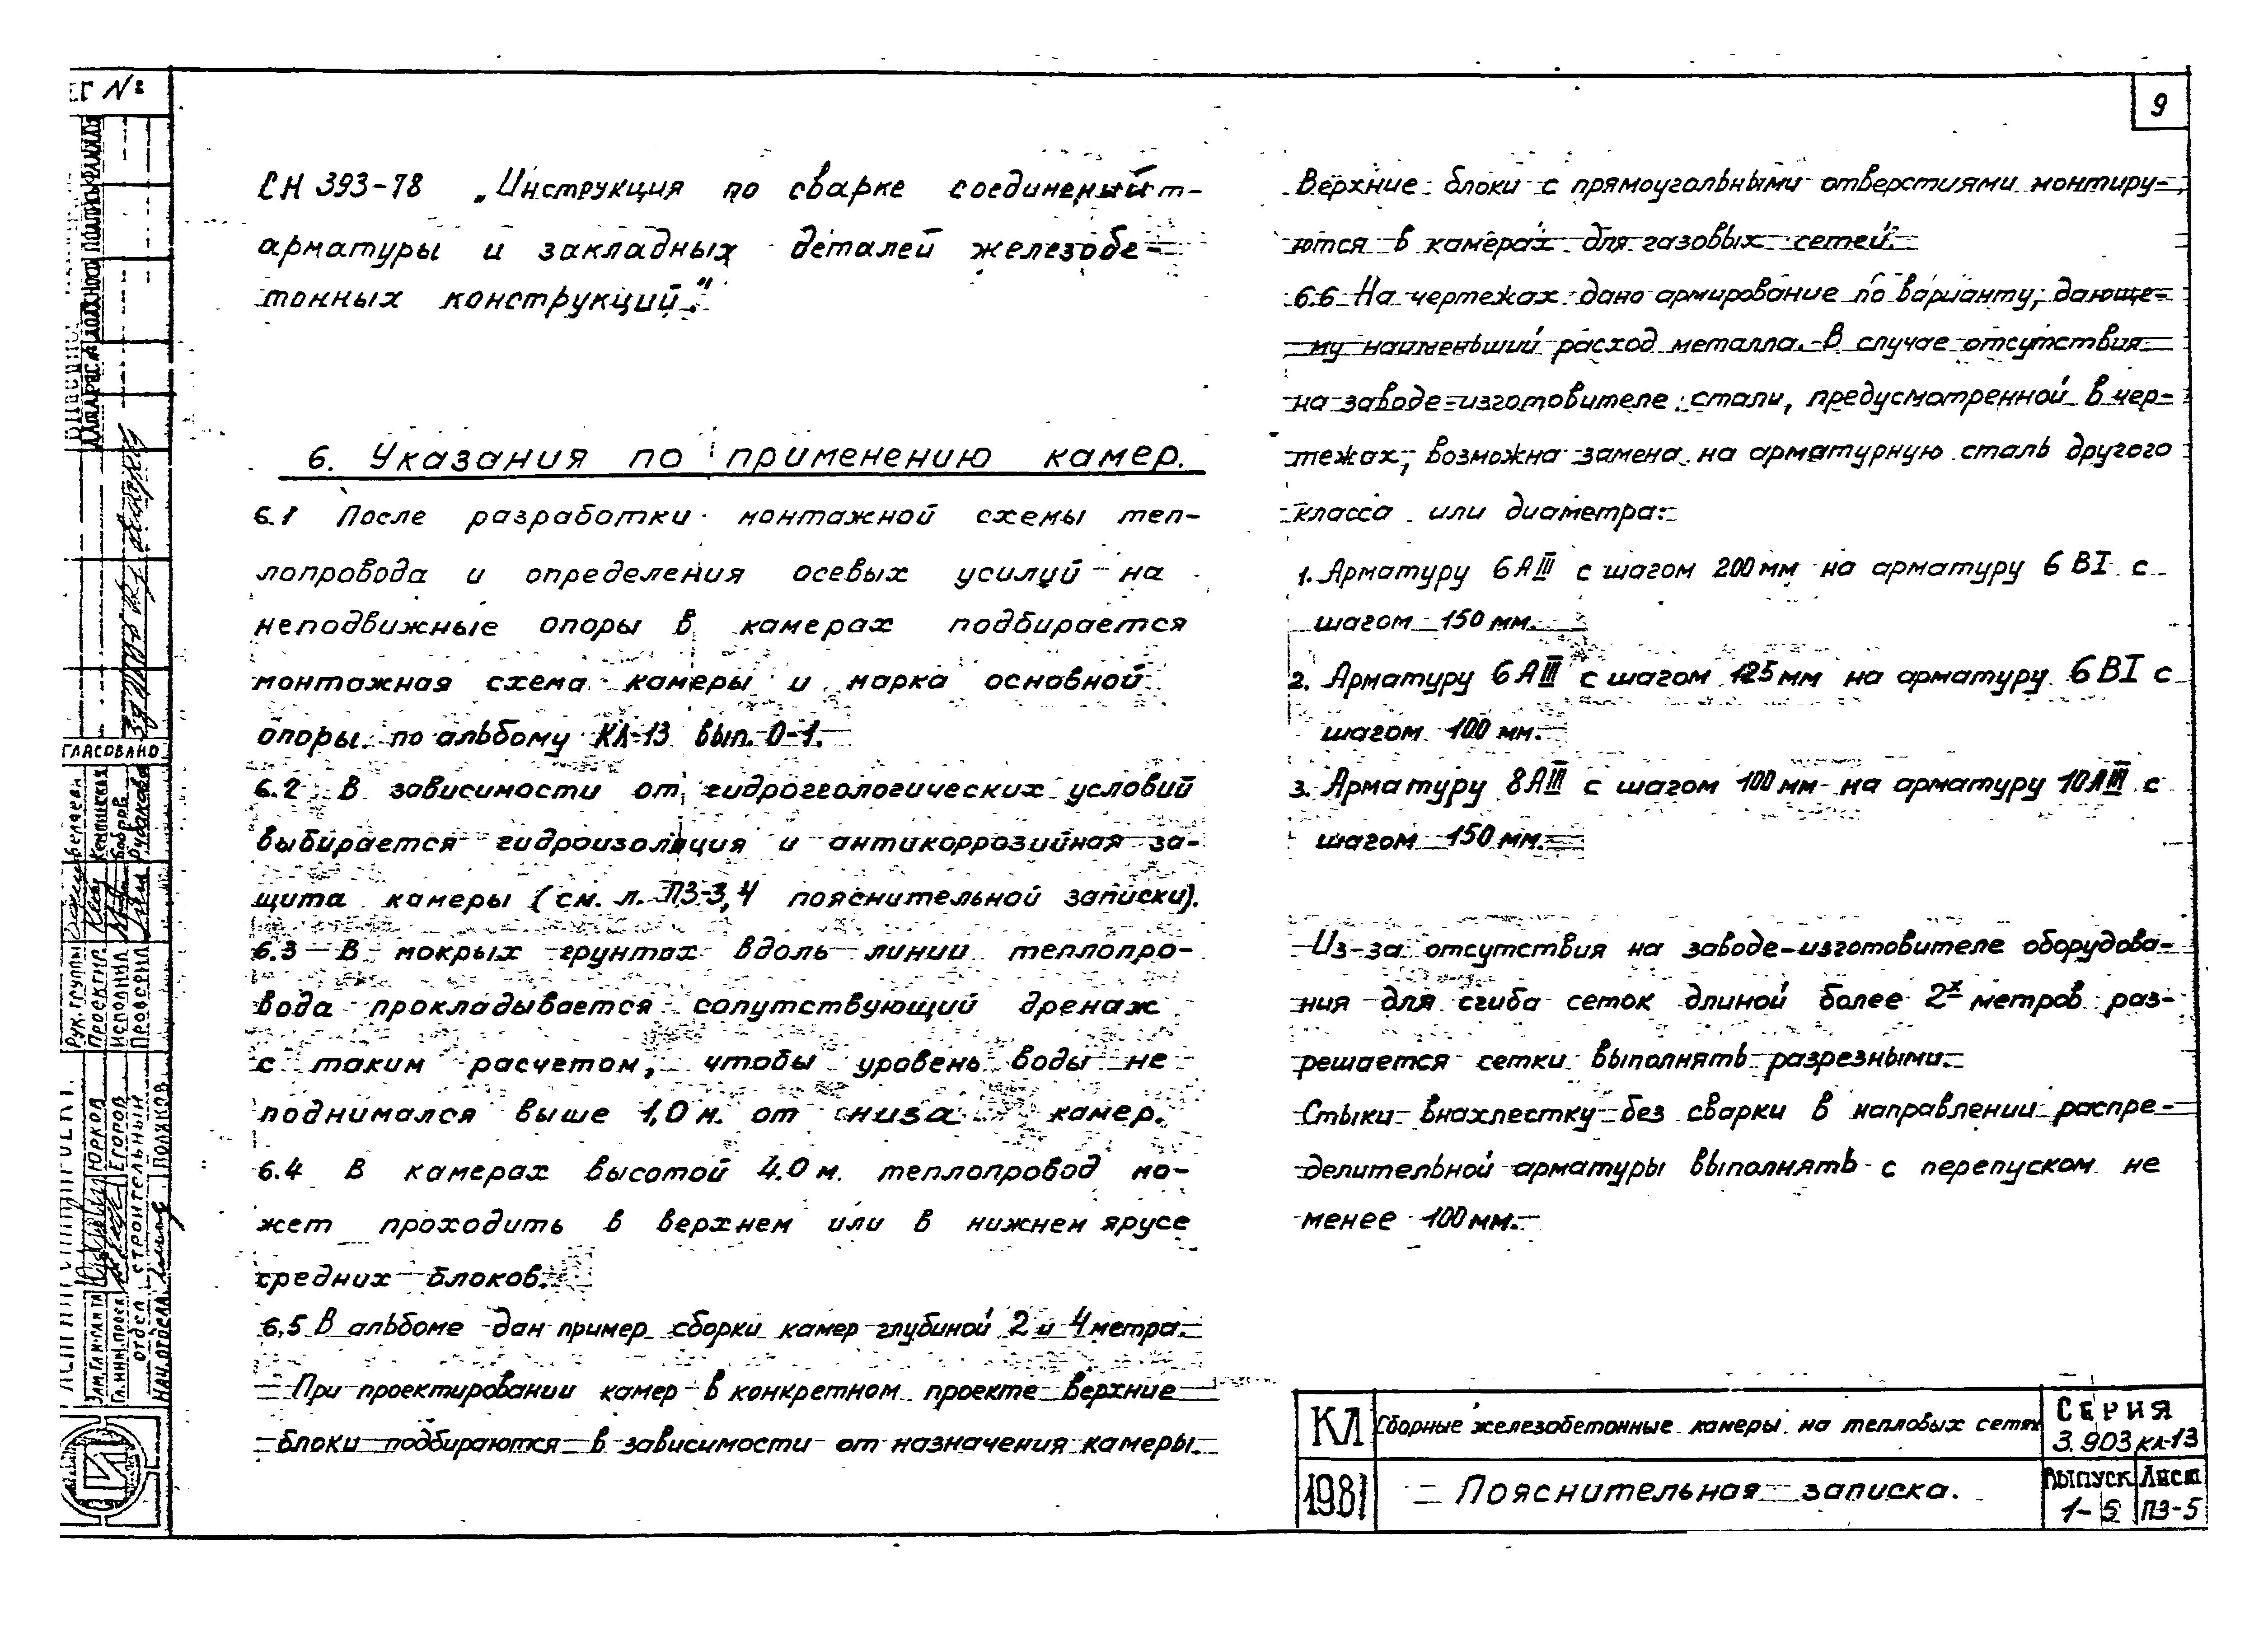 9
СН 393-78 „Инструкция по сварке соединений
арматуры и закладных деталей железобе-
тонных конструкций."
6. Указания по применению камер.
6.1 После разработки монтажной схемы теп-
лопровода и определения осевых усилий на
неподвижные опоры в камерах подбирается
монтажная схема камеры и марка основной
опоры по альбому КЛ-13 вып. 0-1.
6.2 В зависимости от гидрогеологических условий
выбирается гидроизоляция и антикоррозийная за-
щита камеры (см. л. ПЗ-3,4 пояснительной записки).
6.3 В мокрых грунтах вдоль линии теплопро-
вода прокладывается сопутствующий дренаж
с таким расчетом, чтобы уровень воды не
поднимался выше 1,0 м. от низа камер.
6.4 В камерах высотой 4.0 м. теплопровод мо-
жет проходить в верхнем или в нижнем ярусе
средних блоков.
6.5 В альбоме дан пример сборки камер глубиной 2 и 4 метра.
При проектировании камер в конкретном проекте верхние
блоки подбираются в зависимости от назначения камеры.
Верхние блоки с прямоугольными отверстиями монтиру-
ются в камерах для газовых сетей.
6.6 На чертежах дано армирование по варианту, дающе-
му наименьший расход металла. В случае отсутствия
на заводе-изготовителе стали, предусмотренной в чер-
тежах, возможна замена на арматурную сталь другого
класса или диаметра:
1. Арматуру 6АIII с шагом 200 мм на арматуру 6ВI с
шагом 150 мм.
2. Арматуру 6АIII с шагом 125 мм на арматуру 6ВI с
шагом 100 мм.
3. Арматуру 8АIII с шагом 100 мм на арматуру 10АIII с
шагом 150 мм.
Из-за отсутствия на заводе-изготовителе оборудова-
ния для сгиба сеток длиной более 2х метров раз-
решается сетки выполнять разрезными.
Стыки внахлестку без сварки в направлении распре-
делительной арматуры выполнять с перепуском не
менее 100 мм.
КЛ
Сборные железобетонные камеры на тепловых сетях
Серия
3.903 кл-13
1981
Пояснительная записка.
Выпуск
1-5
Лист
ПЗ-5
№
ГЛАСОВАНО
Беляев
Кемпинская
Бобров
Рубакова
Рук. группы
Проектир.
Исполнил
Проверил
Юрков
Егоров
строительный
Полжков
Гл. инж. проек
отдел
Нач. отдела